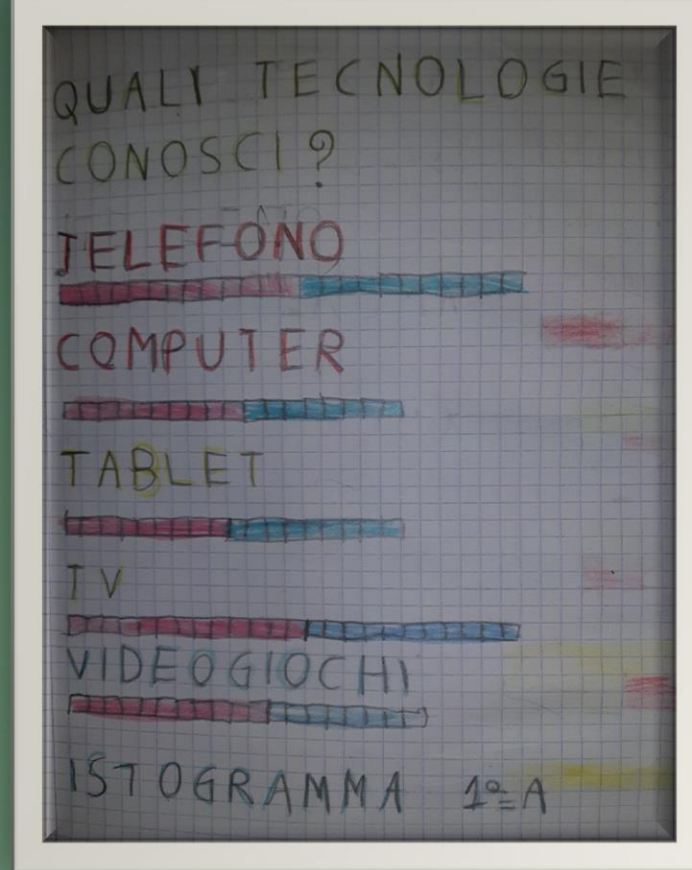 QUALI TECNOLOGIE
CONOSCI?
TELEFONO
COMPUTER
TABLET
TV
VIDEOGIOCHI
ISTOGRAMMA 1ª A